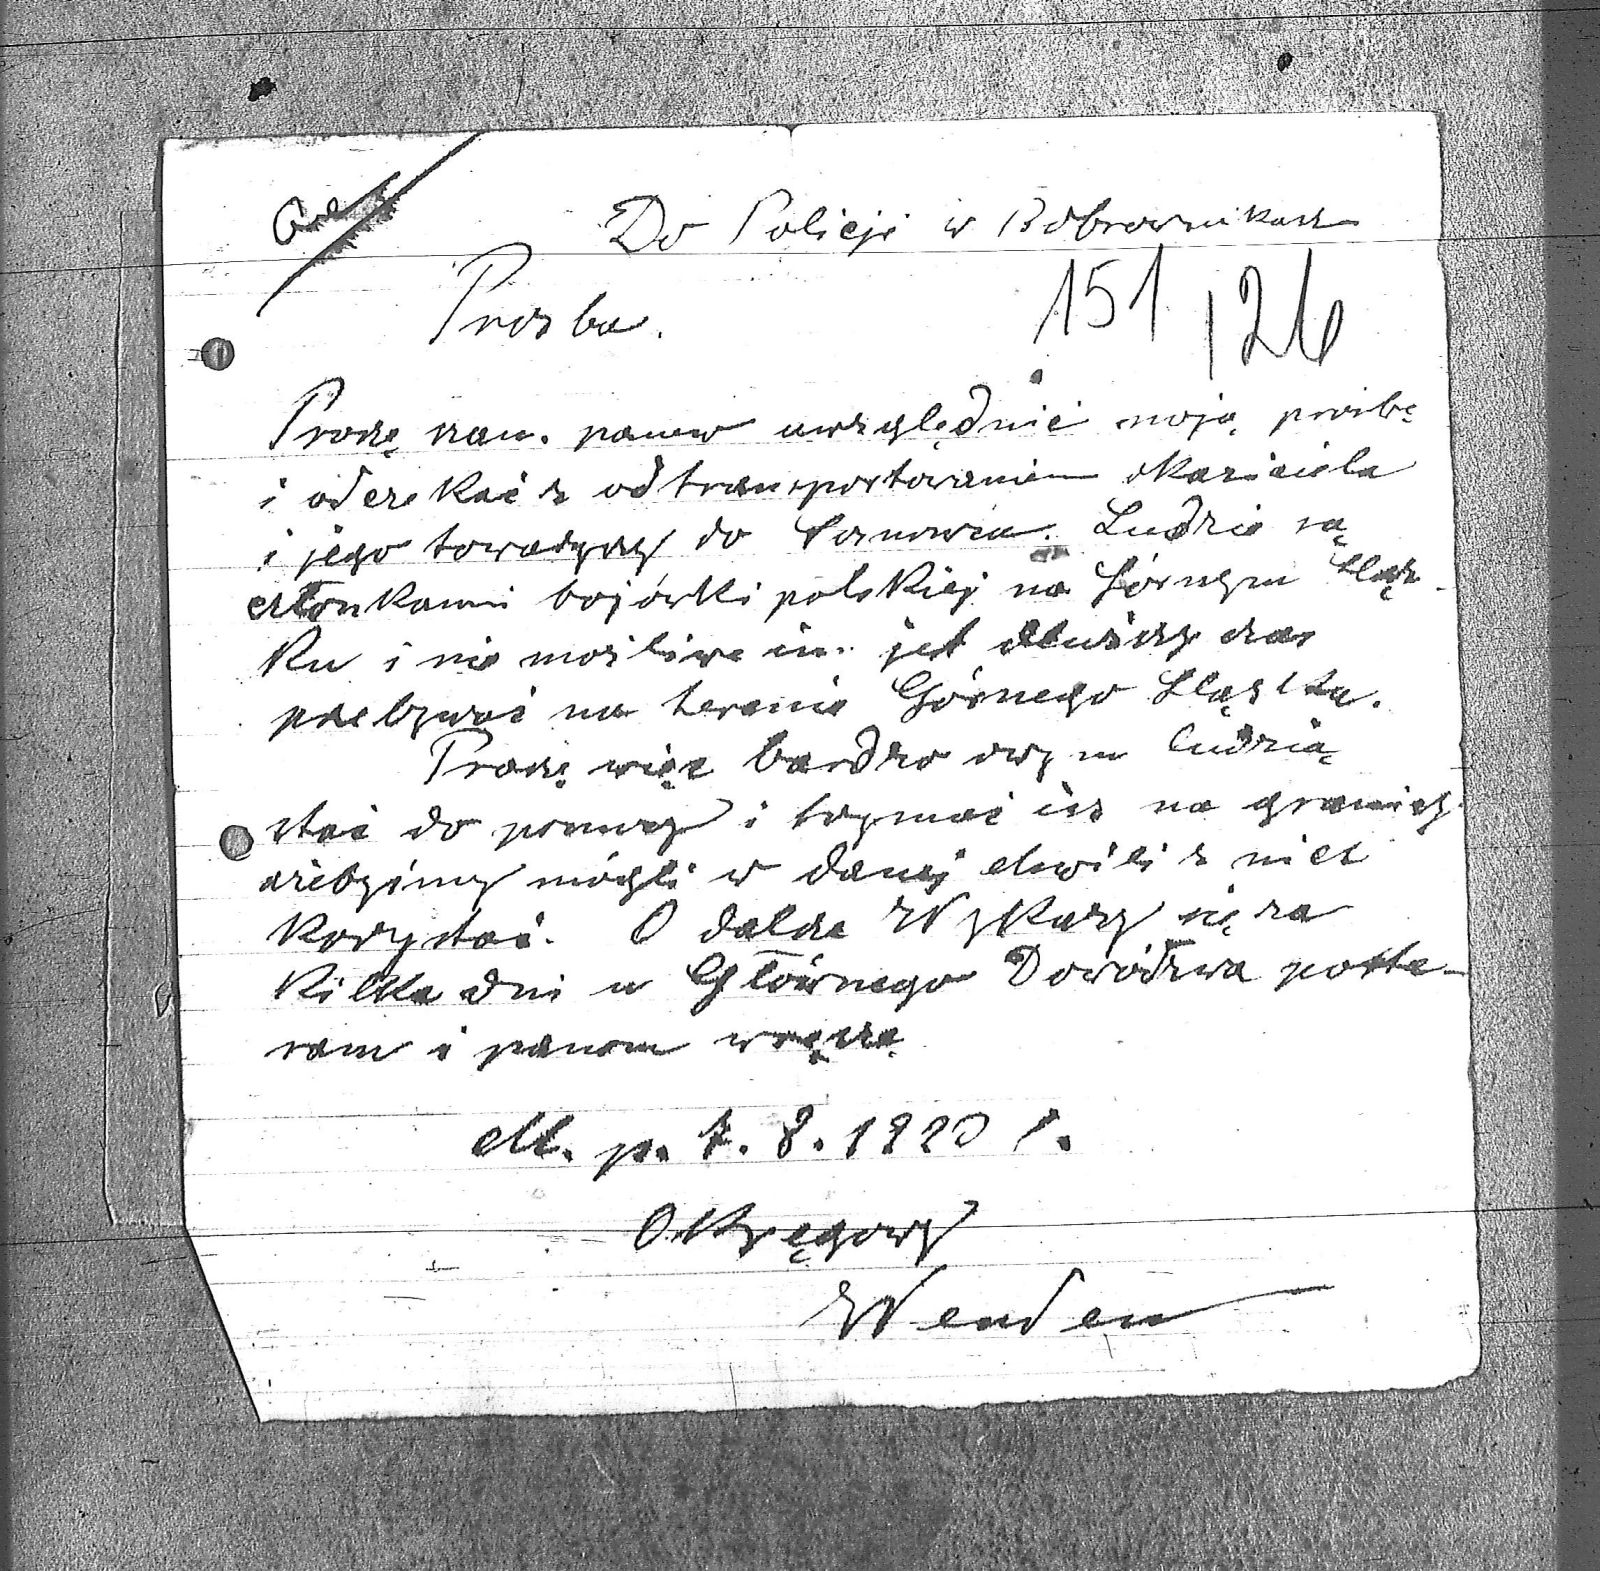 Do Policji w Bobrownikach
Prozba.
151
126
Proszę szan. panów uwzględnić moją prośbę
i odczekać z odtransportowaniem okaziciela
i jego towarzyszy do Sosnowca. Ludzie są
członkami bojówki polskiej na Górnym Sląz-
ku i nie możliwe im jest dłuższy czas
przebywać na terenie Górnego Sląska.
Proszę więc bardzo owym ludzią
stać do pomocy i trzymać ich na granicy
ażebyśmy mógli w danej chwili z nich
korzystać. O dalsze Wykazy się za
kilka dni u Głównego Dowództwa posta-
ram i panom wręczę
M. p. 7. 8. 1920 r.
Okręgowy
Wenden